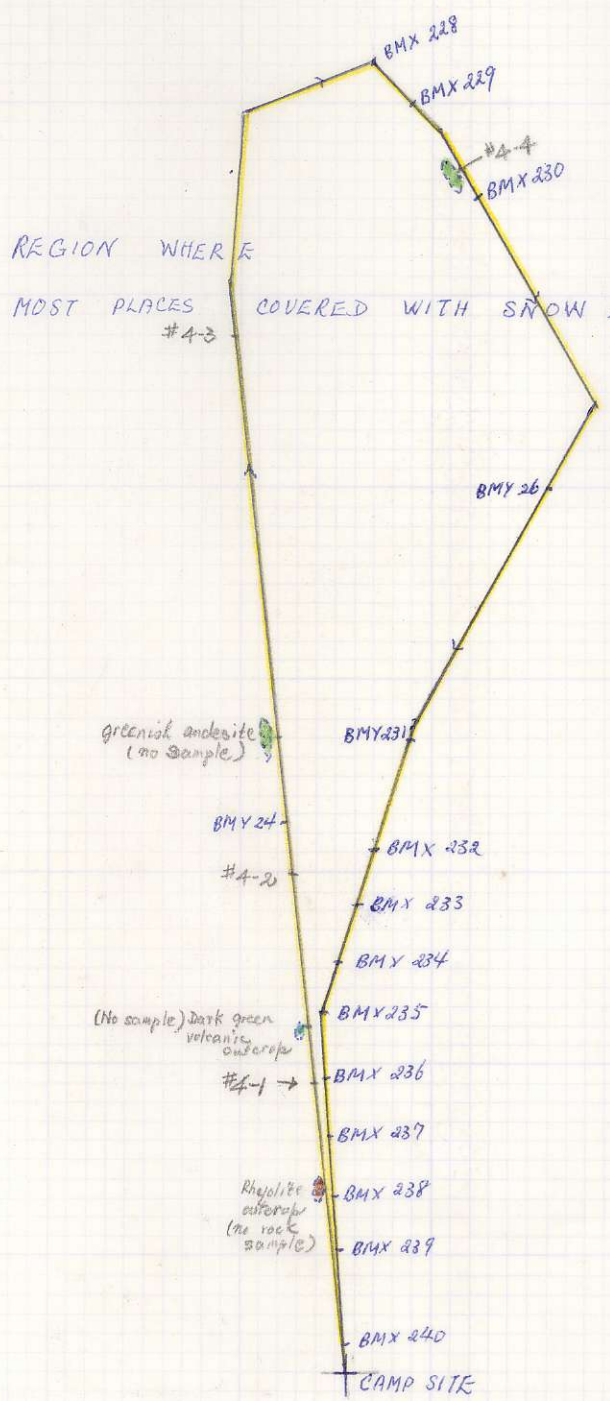 BMX 228
BMX 229
#4-4
BMX 230
REGION WHERE
MOST PLACES COVERED WITH SNOW.
#4-3
BMY 26
greenish andesite
(no sample)
BMY 231
BMY 24
BMX 232
#4-2
BMX 233
BMX 234
(No sample) Dark green
volcanic
outcrop
BMX 235
#4-1 →
BMX 236
BMX 237
Rhyolite
outcrop
(no rock
sample)
BMX 238
BMX 239
BMX 240
CAMP SITE